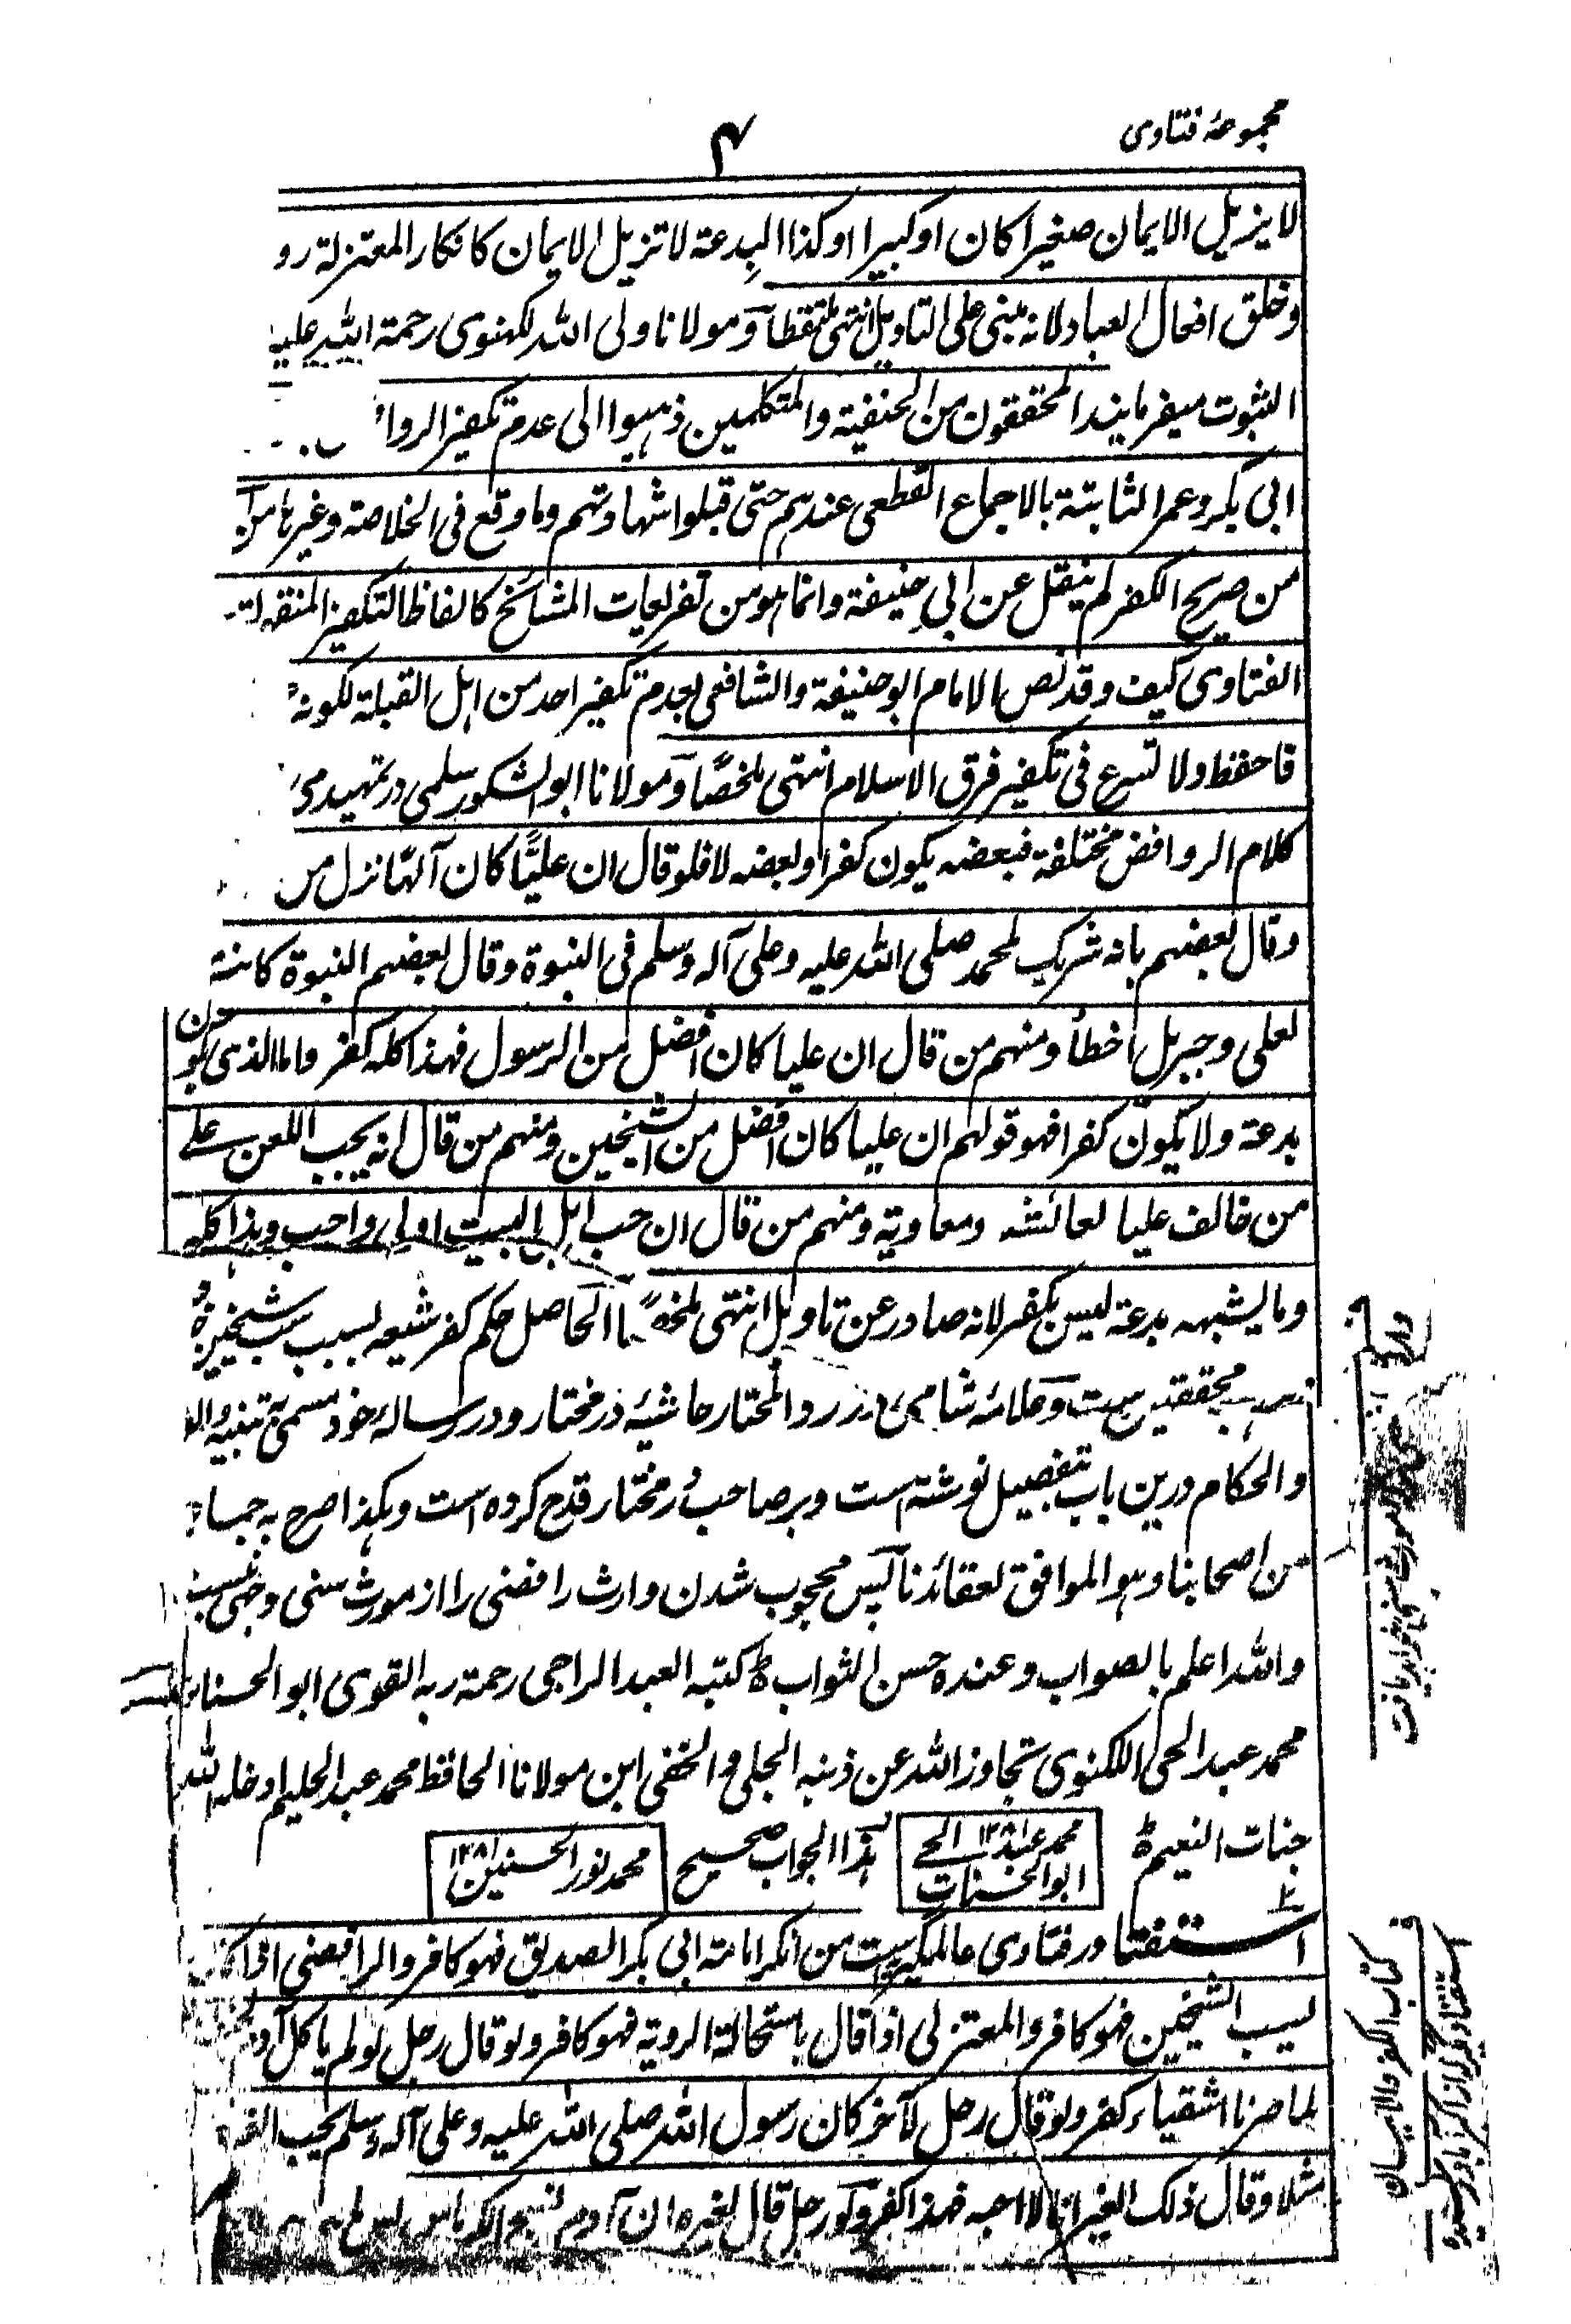 مجموعۂ فتاوی
۴
لا یزیل الایمان صغیرا کان او کبیرا او کذا البدعة لا تزیل الایمان کانکار المعتزلة رو
وخلق افعال العباد لانه مبنی علی التاویل انتهی ملتقطا و مولانا ولی اللہ لکهنوی رحمة اللہ علیه
الثبوت میفرمایند المحققون من الحنفیة والمتکلمین ذهبوا الی عدم تکفیر الروا
ابی بکر وعمر الثابتة بالاجماع القطعی عندهم حتی قبلوا شهادتهم وما وقع فی الخلاصة وغیرها من
من صریح الکفر لم ینقل عن ابی حنیفة وانما هو من تفریعات المشائخ کالفاظ التکفیر المنقولة
الفتاوی کیف وقد نص الامام ابو حنیفة والشافعی بعدم تکفیر احد من اهل القبلة لکونه
فاحفظ ولا تسرع فی تکفیر فرق الاسلام انتهی ملخصًا و مولانا ابو الشکور سلمی در تمهید می
کلام الروافض مختلفة فبعضه یکون کفرا وبعضه لا فلو قال ان علیًا کان آلهًا نزل من
وقال بعضهم بانه شریک لمحمد صلی اللہ علیه وعلی آله وسلم فی النبوة وقال بعضهم النبوة کانت
لعلی وجبریل اخطأ ومنهم من قال ان علیا کان افضل من الرسول فهذا کله کفر واما الذی یکون
بدعة ولا یکون کفرا فهو قولهم ان علیا کان افضل من الشیخین ومنهم من قال انه یجب اللعن علے
من خالف علیا لعائشه ومعاویة ومنهم من قال ان حب اهل البیت اولی واجب وهذا کله
وما یشبهه بدعة لیس بکفر لانه صادر عن تاویل انتهی ملخصًا الحاصل حکم کفر شیعه بسبب سب شیخین
محققین ست و علامه شامی در رد المحتار حاشیۂ درمختار و در رسالۂ خود مسمی تنبیه الو
والحکام درین باب بتفصیل نوشته است وبر صاحب درمختار قدح کرده است وبکذا صرح به جما
من اصحابنا وهو الموافق لعقائدنا پس محجوب شدن وارث رافضی را از مورث سنی وجهی نیست
واللہ اعلم بالصواب وعنده حسن الثواب کتبه العبد الراجی رحمة ربه القوی ابو الحسنات
محمد عبد الحی اللکنوی تجاوز اللہ عن ذنبه الجلی والخفی ابن مولانا الحافظ محمد عبد الحلیم ادخله اللہ
جنات النعیم
محمد عبد الحے ابو الحسنات ۱۲۸۱
هذا الجواب صحیح
محمد نور الحسنین ۱۲۸۱
استفتا در فتاوی عالمگیریست من انکر امامة ابی بکر الصدیق فهو کافر والرافضی اذا کان
یسب الشیخین فهو کافر والمعتزلی اذا قال باستحالة الرویة فهو کافر ولو قال رجل لو لم یاکل آدم
لما صرنا اشقیاء کفر ولو قال رجل لآخر کان رسول اللہ صلی اللہ علیه وعلی آله وسلم یحب القر
مثلا وقال ذلک الغیر انا لا احبه فهذا کفر ولو رجل قال لغیره ان آدم نسج الکرباس
کتاب الکفر والایمان